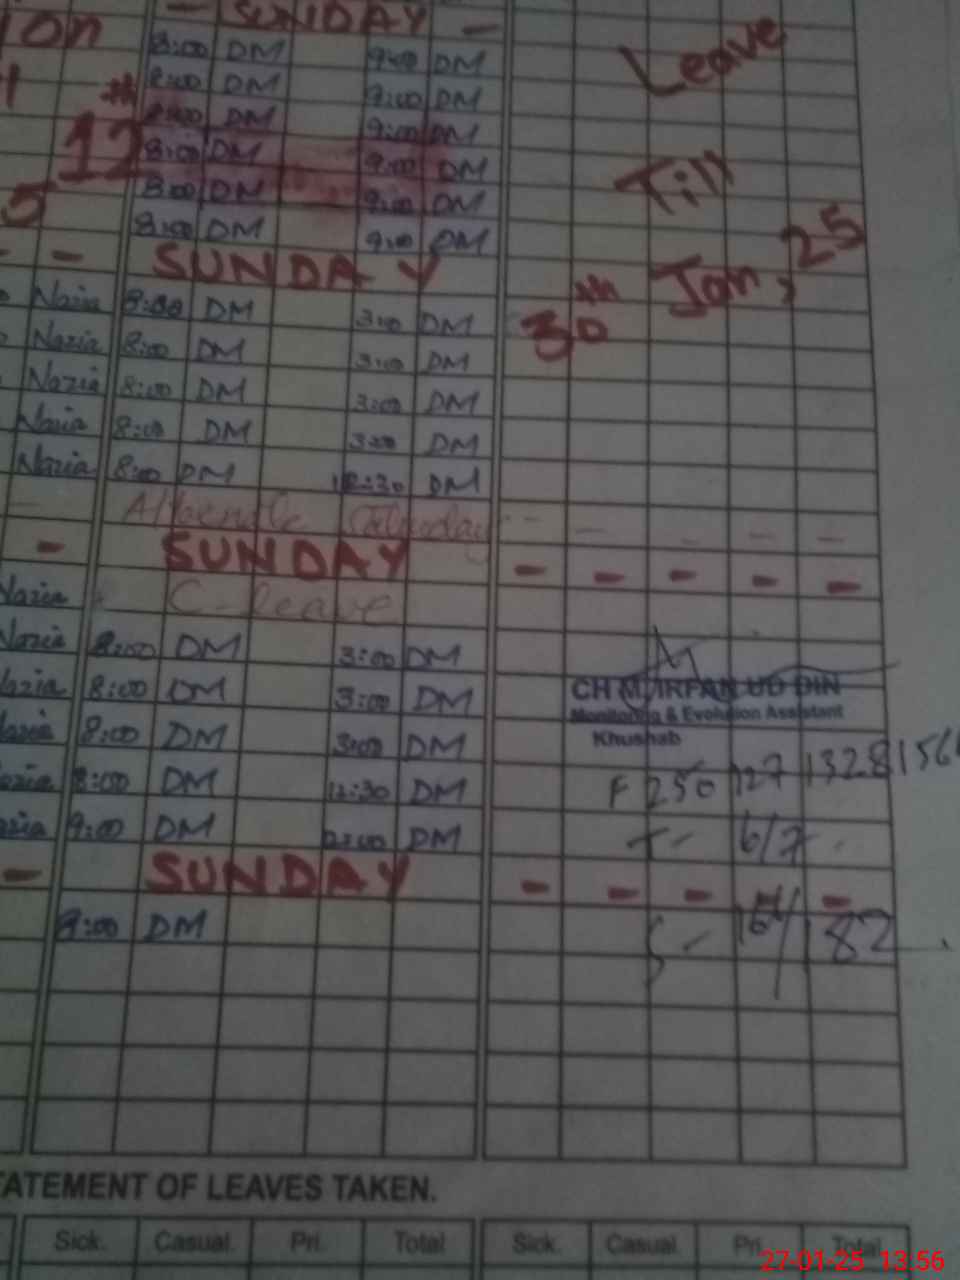 - SUNDAY -
8:00 DM 9:00 DM Leave
8:00 DM 9:00 DM
8:00 DM 9:00 DM
12th 8:00 DM 9:00 DM Till
8:00 DM 9:00 DM
5 8:00 DM 9:00 DM
- - SUNDAY 30th Jan, 25
Nazia 8:00 DM 3:00 DM
Nazia 8:00 DM 3:00 DM
Nazia 8:00 DM 3:00 DM
Nazia 8:00 DM 3:00 DM
Nazia 8:00 DM 12:30 DM
Alternate Saturday - - - - -
- SUNDAY - - - - -
Nazia C-leave
Nazia 8:00 DM 3:00 DM
Nazia 8:00 DM 3:00 DM
CH M. IRFAN UD DIN
Monitoring & Evolution Assistant
Nazia 8:00 DM 3:00 DM
Khushab
Nazia 8:00 DM 12:30 DM
F 250 127
Nazia 9:00 DM DM
T - 6/7
- SUNDAY - - - -
9:00 DM
S - 182
STATEMENT OF LEAVES TAKEN.
Sick. Casual. Pri. Total Sick. Casual. Pri. Total
27-01-25 13:56